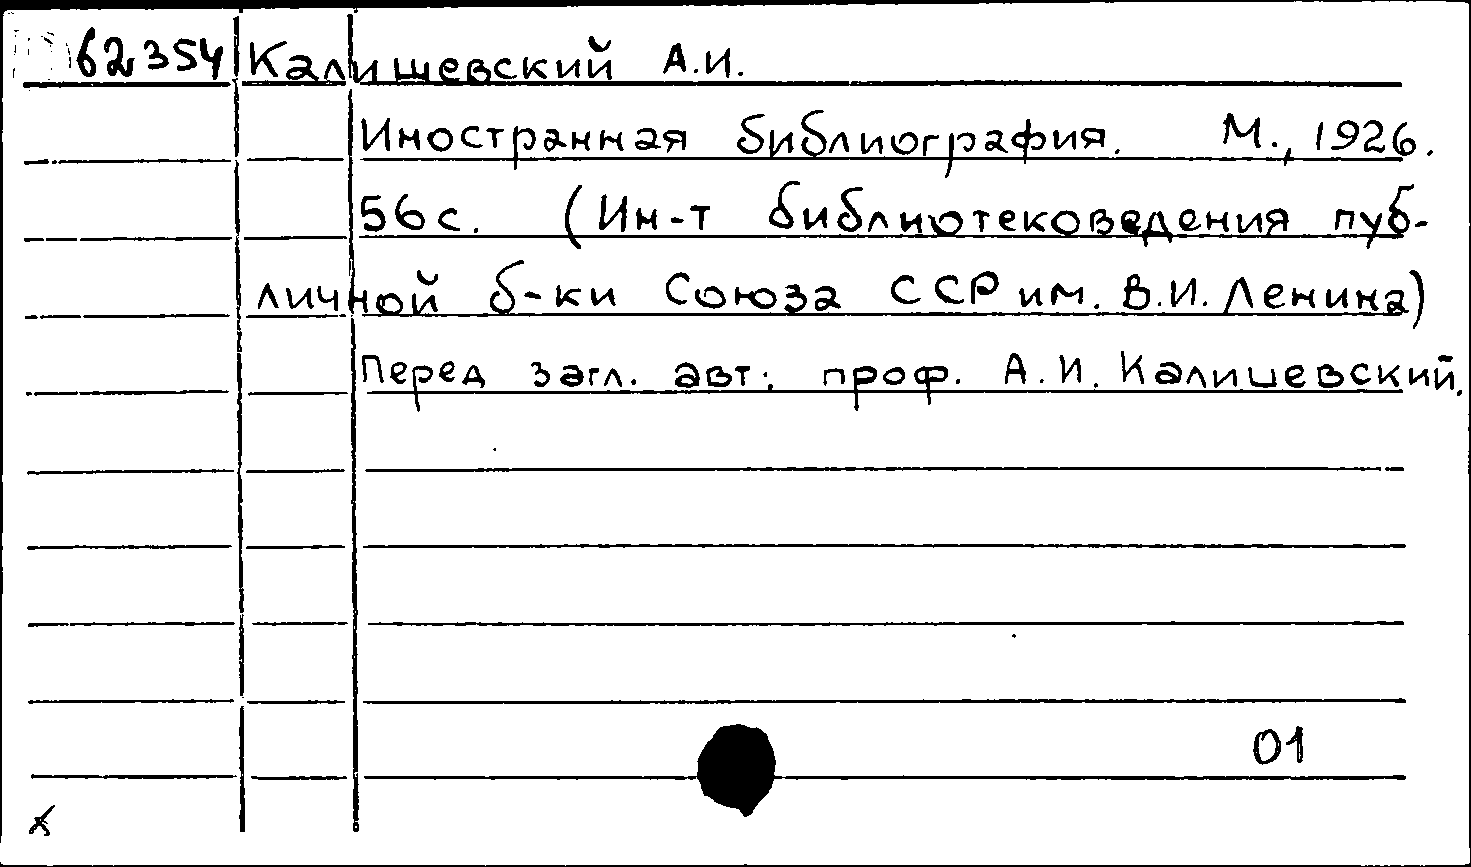 62354 Калишевский А.И.
Иностранная библиография. М., 1926.
56с. (Ин-т библиотековедения пуб-
личной б-ки Союза ССР им. В.И. Ленина)
Перед загл. авт.: проф. А.И. Калишевский.
01